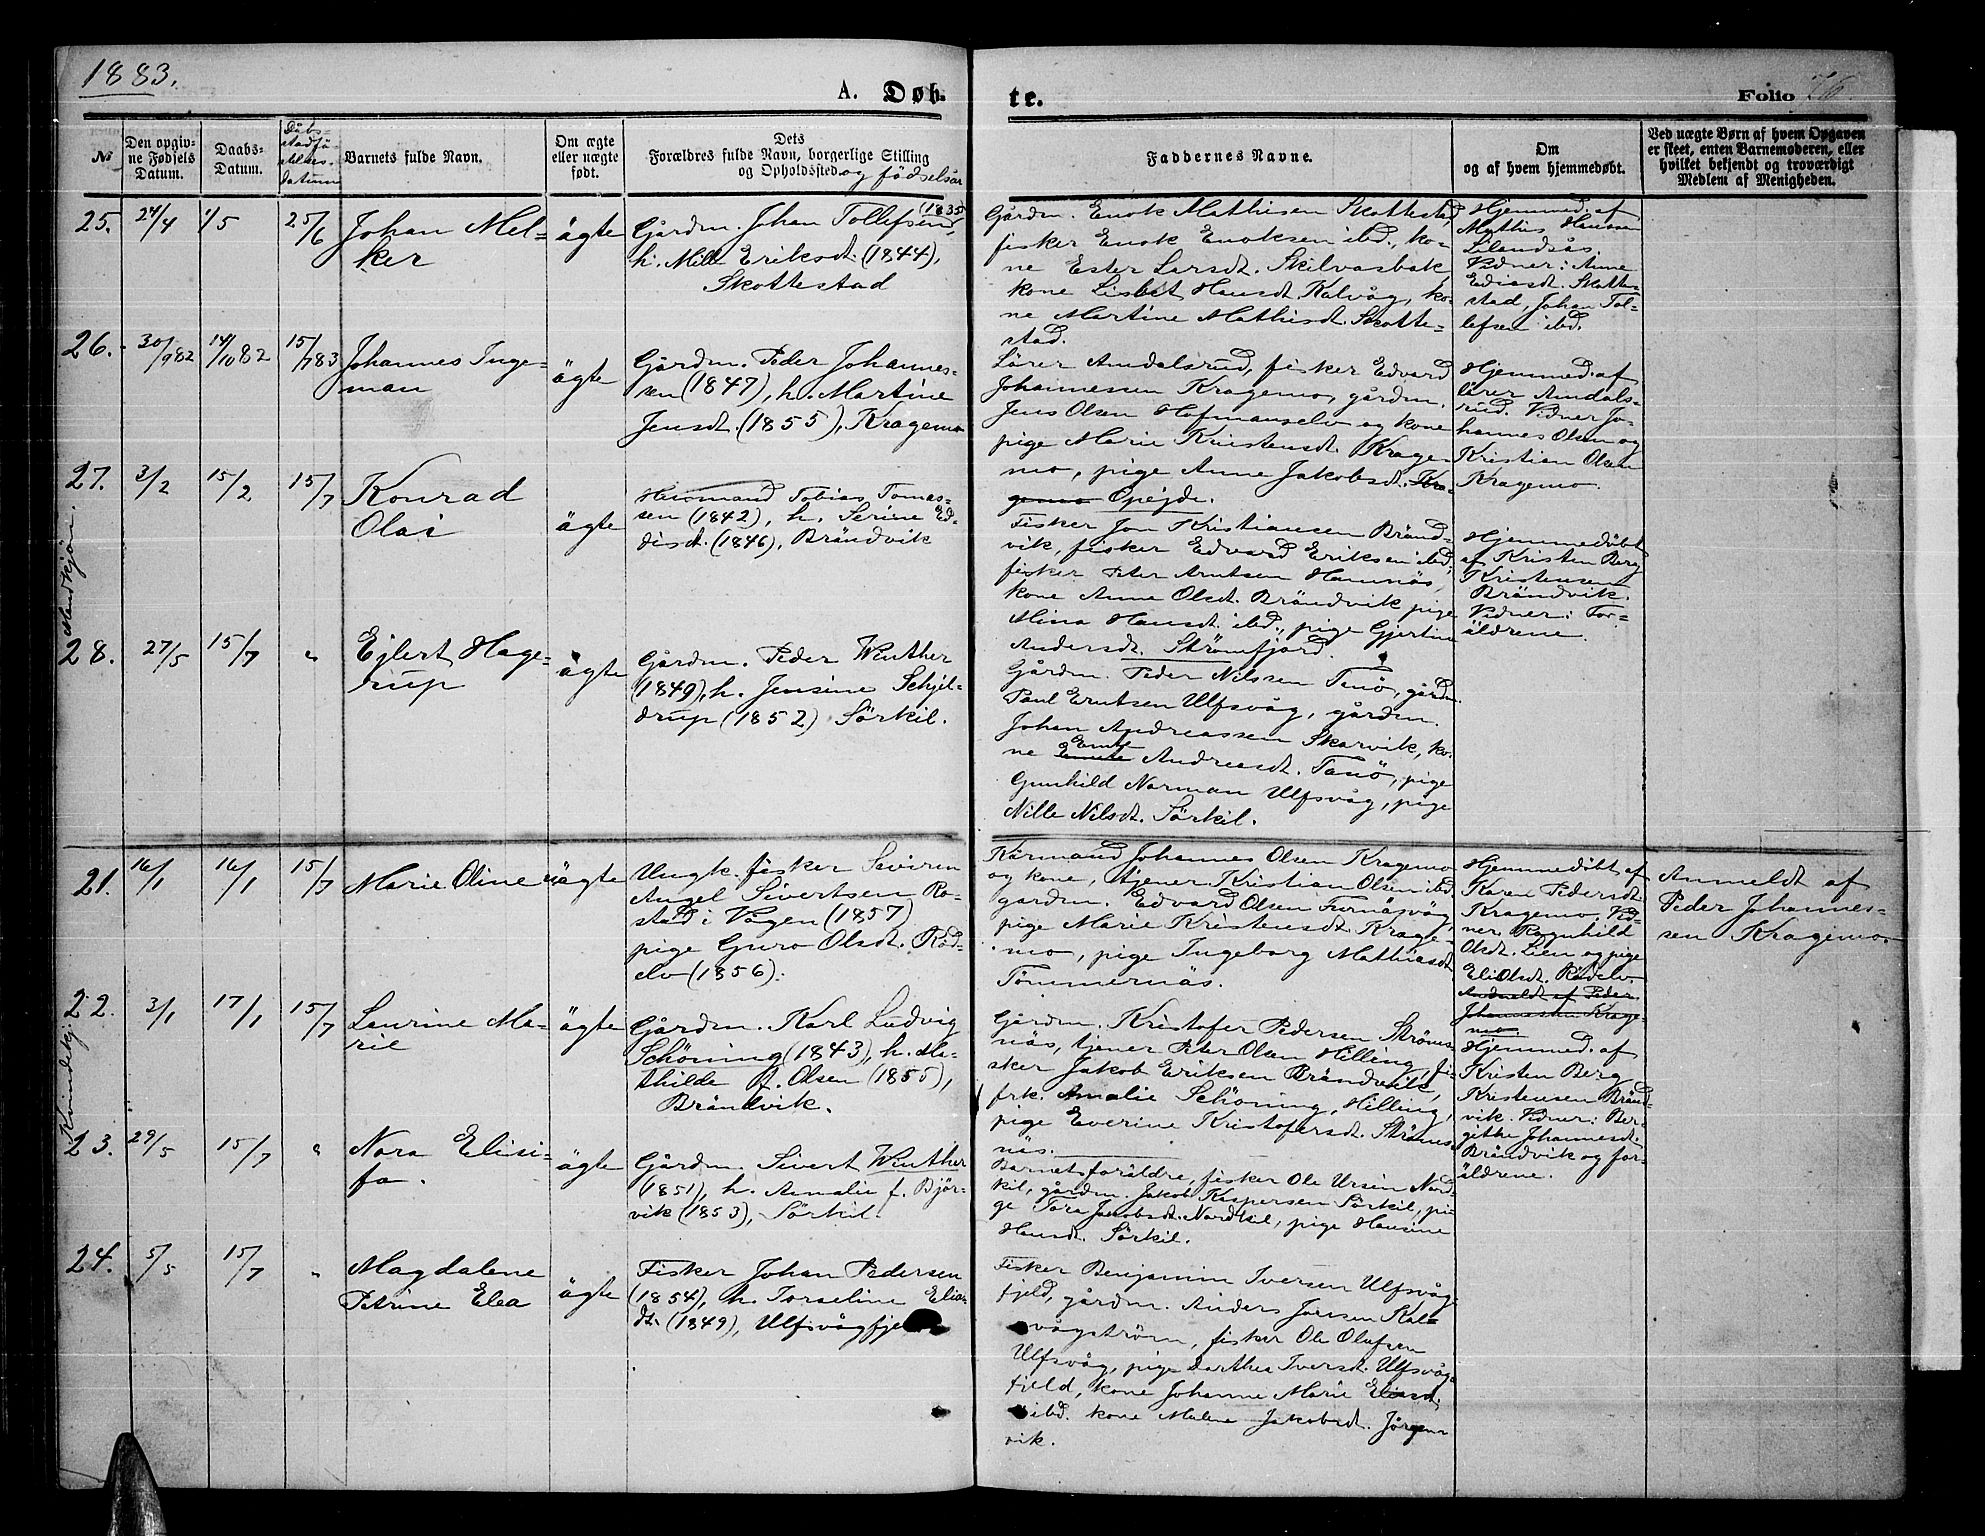 1883.
A. Døb-
te.
Folio 76.
№
Den opgiv-
ne Fødsels
Datum.
Daabs-
Datum.
Dåbs-
stadfä-
stelses-
datum
Barnets fulde Navn.
Om ægte
eller uægte
født.
Dets
Forældres fulde Navn, borgerlige Stilling
og Opholdssted og fødselsår
Faddernes Navne.
Om
og af hvem hjemmedøbt.
Ved uægte Børn af hvem Opgaven
er skeet, enten Barnemoderen, eller
hvilket bekjendt og troværdigt
Medlem af Menigheden.
Mandkjøn.
25.
24/4
1/5
25/6
Johan Mel-
ker
ägte
Gårdm. Johan Tollefsen (1835),
h. Mille Eriksdt. (1844),
Skottestad
Gårdm. Enok Mathisen Skottestad,
fisker Enok Enoksen ibd., ko-
ne Ester Larsdt. Skilvasbak,
kone Lisbet Hansdt. Kalvåg, ko-
ne Martine Mathisdt. Skotte-
stad.
Hjemmed. af
Mathis Hansen
Lilandsås
Vidner: Anne
Ediasdt. Skotte-
stad, Johan Tol-
lefsen ibd.
26.
30/9 82
14/10 82
15/7 83
Johannes Inge-
man
ägte
Gårdm. Peder Johannes-
sen (1847), h. Martine
Jensdt. (1855), Kragemo
Lärer Amdalsrud, fisker Edvard
Johannessen Kragemo, gårdm.
Jens Olsen Hofmanselv og kone
pige Marie Kristensdt. Krage-
mo, pige Anne Jakobsdt. Kra-
gemo Opejde.
Hjemmed. af
lärer Amdals-
rud. Vidner Jo-
hannes Olsen og
Kristian Olsen
Kragemo.
27.
3/2
15/2
15/7
Konrad
Olai
ägte
Husmand Tobias Tomas-
sen (1842), h. Serine Ed-
disdt. (1846), Brändvik
Fisker Jon Kristiansen Bränd-
vik, fisker Edvard Eriksen ibd.
fisker Peter Arntsen Hamnäs,
kone Anne Olsdt. Brändvik pige
Mina Hansdt. ibd., pige Gjertine
Andersdt. Strömfjord.
Hjemmedöbt
af Kristen Berg
Kristensen
Brändvik.
Vidner: For-
äldrene.
28.
27/5
15/7
"
Ejlert Hage-
rup
ägte
Gårdm. Peder Winther
(1849), h. Jensine Schjel-
drup (1852) Sörkil.
Gårdm. Peder Nilssen Tanö, gårdm.
Paul Erntsen Ulfsvåg, gårdm.
Johan Andreassen Skarvik, ko-
ne Emte Andreasdt. Tanö, pige
Gunhild Norman Ulfsvåg, pige
Nille Nilsdt. Sörkil.
Kvindekj.
21.
16/1
16/1
15/7
Marie Oline
uägte
Ungk. fisker Seviren
Angel Sivertsen Ro-
stad i Vågen (1857)
pige Guro Olsdt. Röd-
elv (1856).
Kårmand Johannes Olsen Kragemo
og kone, tjener Kristian Olsen ibd.
gårdm. Edvard Olsen Furnäsvåg,
pige Marie Kristensdt Krage-
mo, pige Ingeborg Mathiesdt
Tömmernäs.
Hjemmedöbt af
Karen Pedersdt
Kragemo. Vid-
ner, Ragnhild
Olsdt. Lien og pige
Eli Olsdt. Rödelv.
Andmeldt af Peder
Johannessen Krage-
mo.
Anmeldt af
Peder Johannes-
sen Kragemo.
22.
3/1
17/1
15/7
Laurine Ma-
rie
ägte
Gårdm. Karl Ludvig
Schöning (1843), h. Ma-
thilde f. Olsen (1855),
Brändvik.
Gårdm. Kristofer Pedersen Ströms-
näs, tjener Peter Olsen Hilling, fi-
sker Jakob Eriksen Brändvik,
frk. Amalie Schöning, Hilling,
pige Everine Kristofersdt. Ströms-
näs.
Hjemmed. af
Kristen Berg
Kristensen Bränd-
vik. Vidner: Ber-
gitte Johannesdt.
Brändvik og for-
äldrene.
23.
29/5
15/7
"
Nora Elisi-
fa.
ägte
Gårdm. Sivert Winther
(1851), h. Amalie f. Björ-
vik (1853), Sörkil.
Barnets foräldre, fisker Ole Ursin Nord-
kil, gårdm. Jakob Kaspersen Sörkil, pi-
ge Tora Jacobsdt. Nordkil, pige Hansine
Hansdt. Sörkil.
24.
5/5
15/7
"
Magdalene
Petrine Elea
ägte
Fisker Johan Pedersen
(1854), h. Torseline Elias-
dt. (1849), Ulfsvågfje
Fisker Benjamin Iversen Ulfsvåg-
fjeld, gårdm. Anders Jönsen Kal-
vågström, fisker Ole Olufsen
Ulfsvåg, pige Dorthea Iversdt. Ulfsvåg-
fjeld, kone Johanne Marie Eliasdt.
ibd. kone Malene Jakobsdt. Jörgens-
vik.